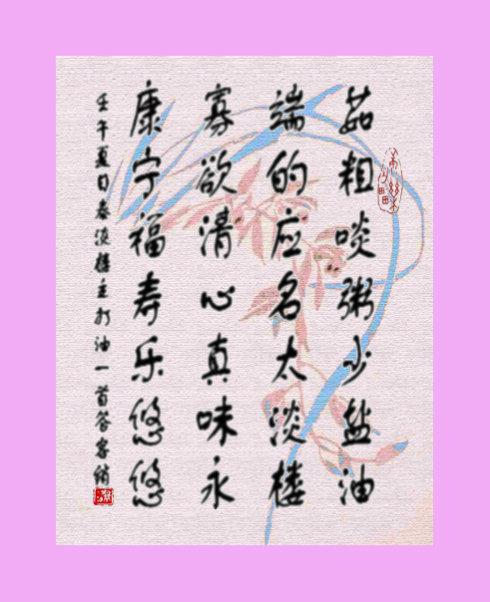 茹粗啖粥少盐油
端的应名太淡楼
寡欲清心真味永
康宁福寿乐悠悠
壬午夏日泰淡楼主打油一首答客销